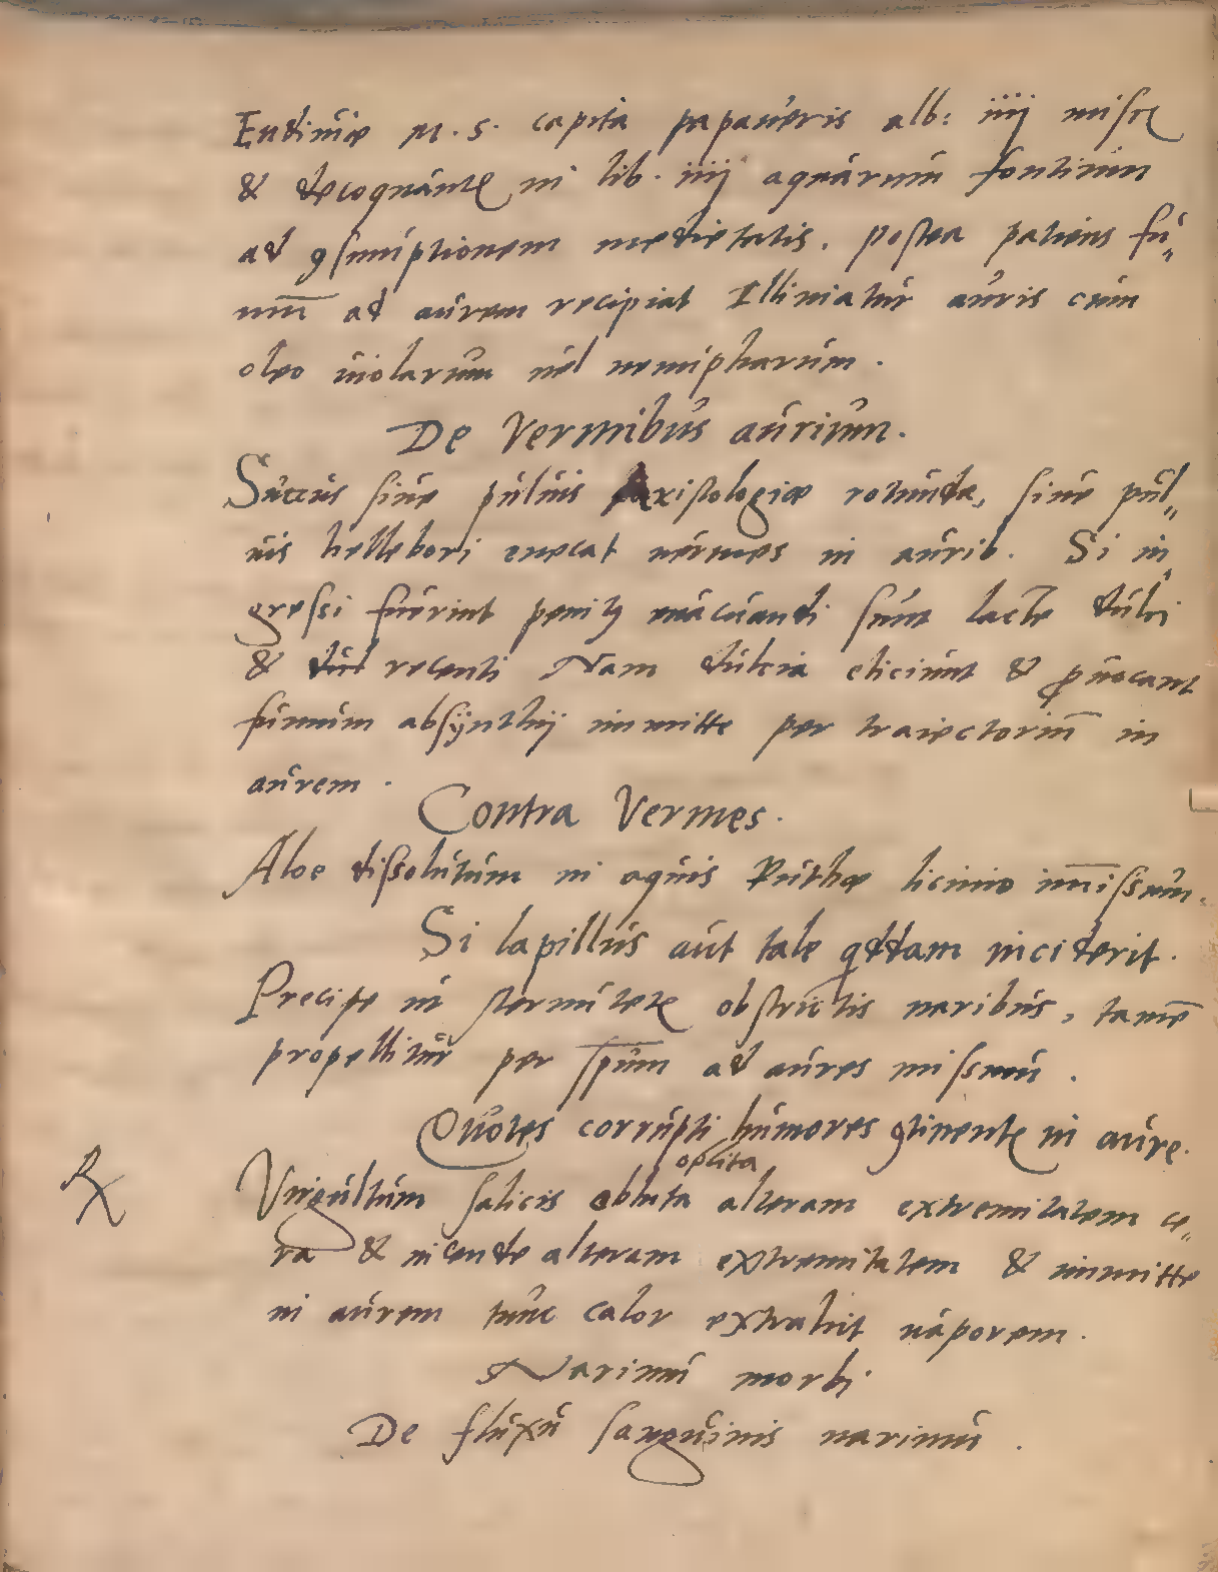 Endiuiæ M. s. capita papaueris alb: iiij misce
& decoquantꝛ in lib. iiij aquarum fontium
ad ꝯsumptionem medietatis. postea patiens fu„
mū ad aurem recipiat Illiniatur auris cum
oleo uiolarum uel nenupharum.
De Vermibus aurium.
Succus siue puluis Aristologiæ rotunda, siue pul„
uis hellebori enecat uermes in aurib. Si in„
gressi fuerint penitꝰ euacuandi sunt lacte dulci
& recenti Nam dulcia eliciunt & ꝓuocant
fumum absÿnthij immitte per traiectoriū in
aurem.
Contra Vermes.
Aloe dissolutum in aquis Ruthæ licinio im̄issum.
Si lapillus aut tale qddam inciderit.
Precipe ut sternutetꝛ obstrictis naribus, tamē
propellitur per sp̄um ad aures missum.
Quotes corrupti humores ꝯtinentꝛ in aure.
oplita
℞ Virgultum salicis obluta alteram extremitatem ce„
ra & incende alteram extremitatem & immitte
in aurem tunc calor extrahit uaporem.
Narium morbi
De fluxu sanguinis narium.